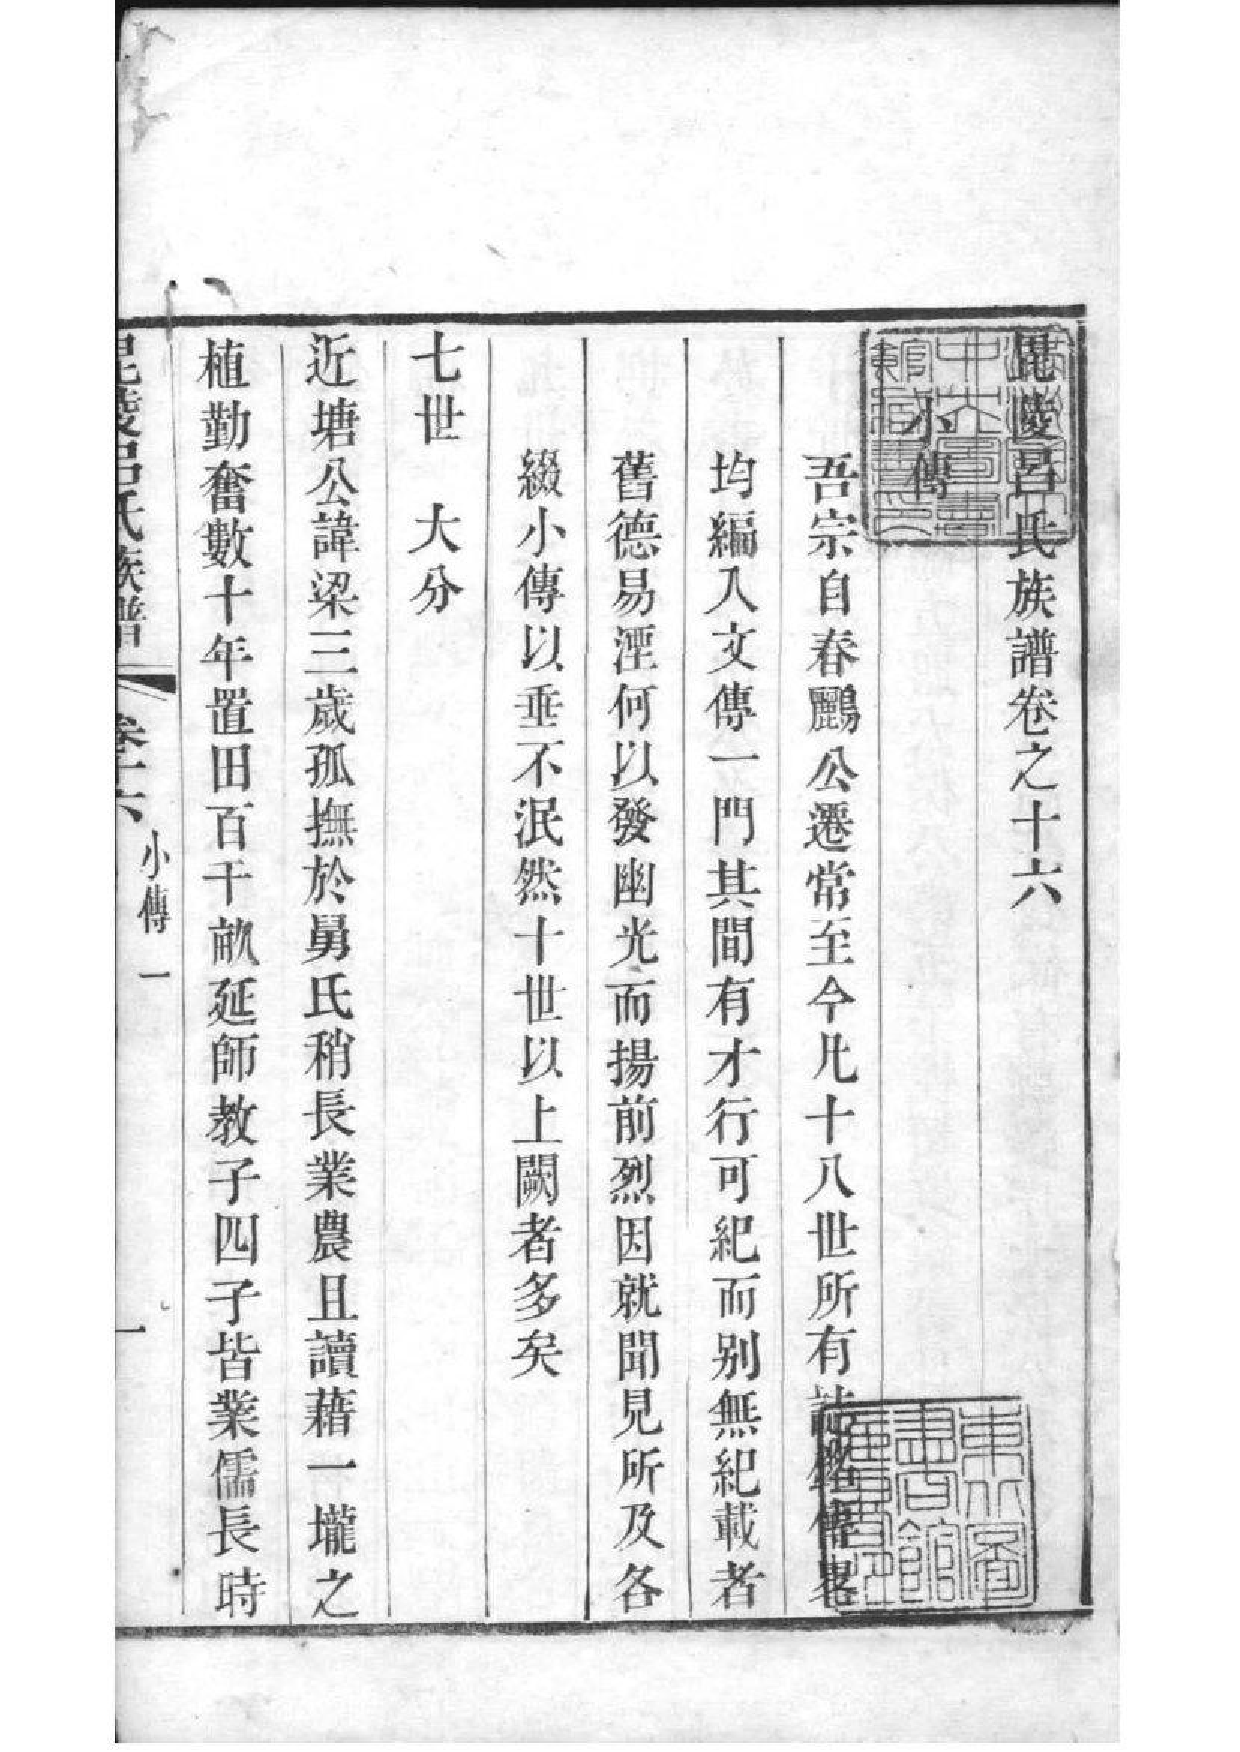 毘陵呂氏族譜卷之十六
小傳
吾宗自春鸝公遷常至今凡十八世所有誌銘傳畧
均編入文傳一門其間有才行可紀而别無紀載者
舊德易湮何以發幽光而揚前烈因就聞見所及各
綴小傳以垂不泯然十世以上闕者多矣
七世　大分
近塘公諱梁三歲孤撫於舅氏稍長業農且讀藉一壠之
植勤奮數十年置田百千畝延師教子四子皆業儒長時
毘陵呂氏族譜　卷十六　小傳一　一